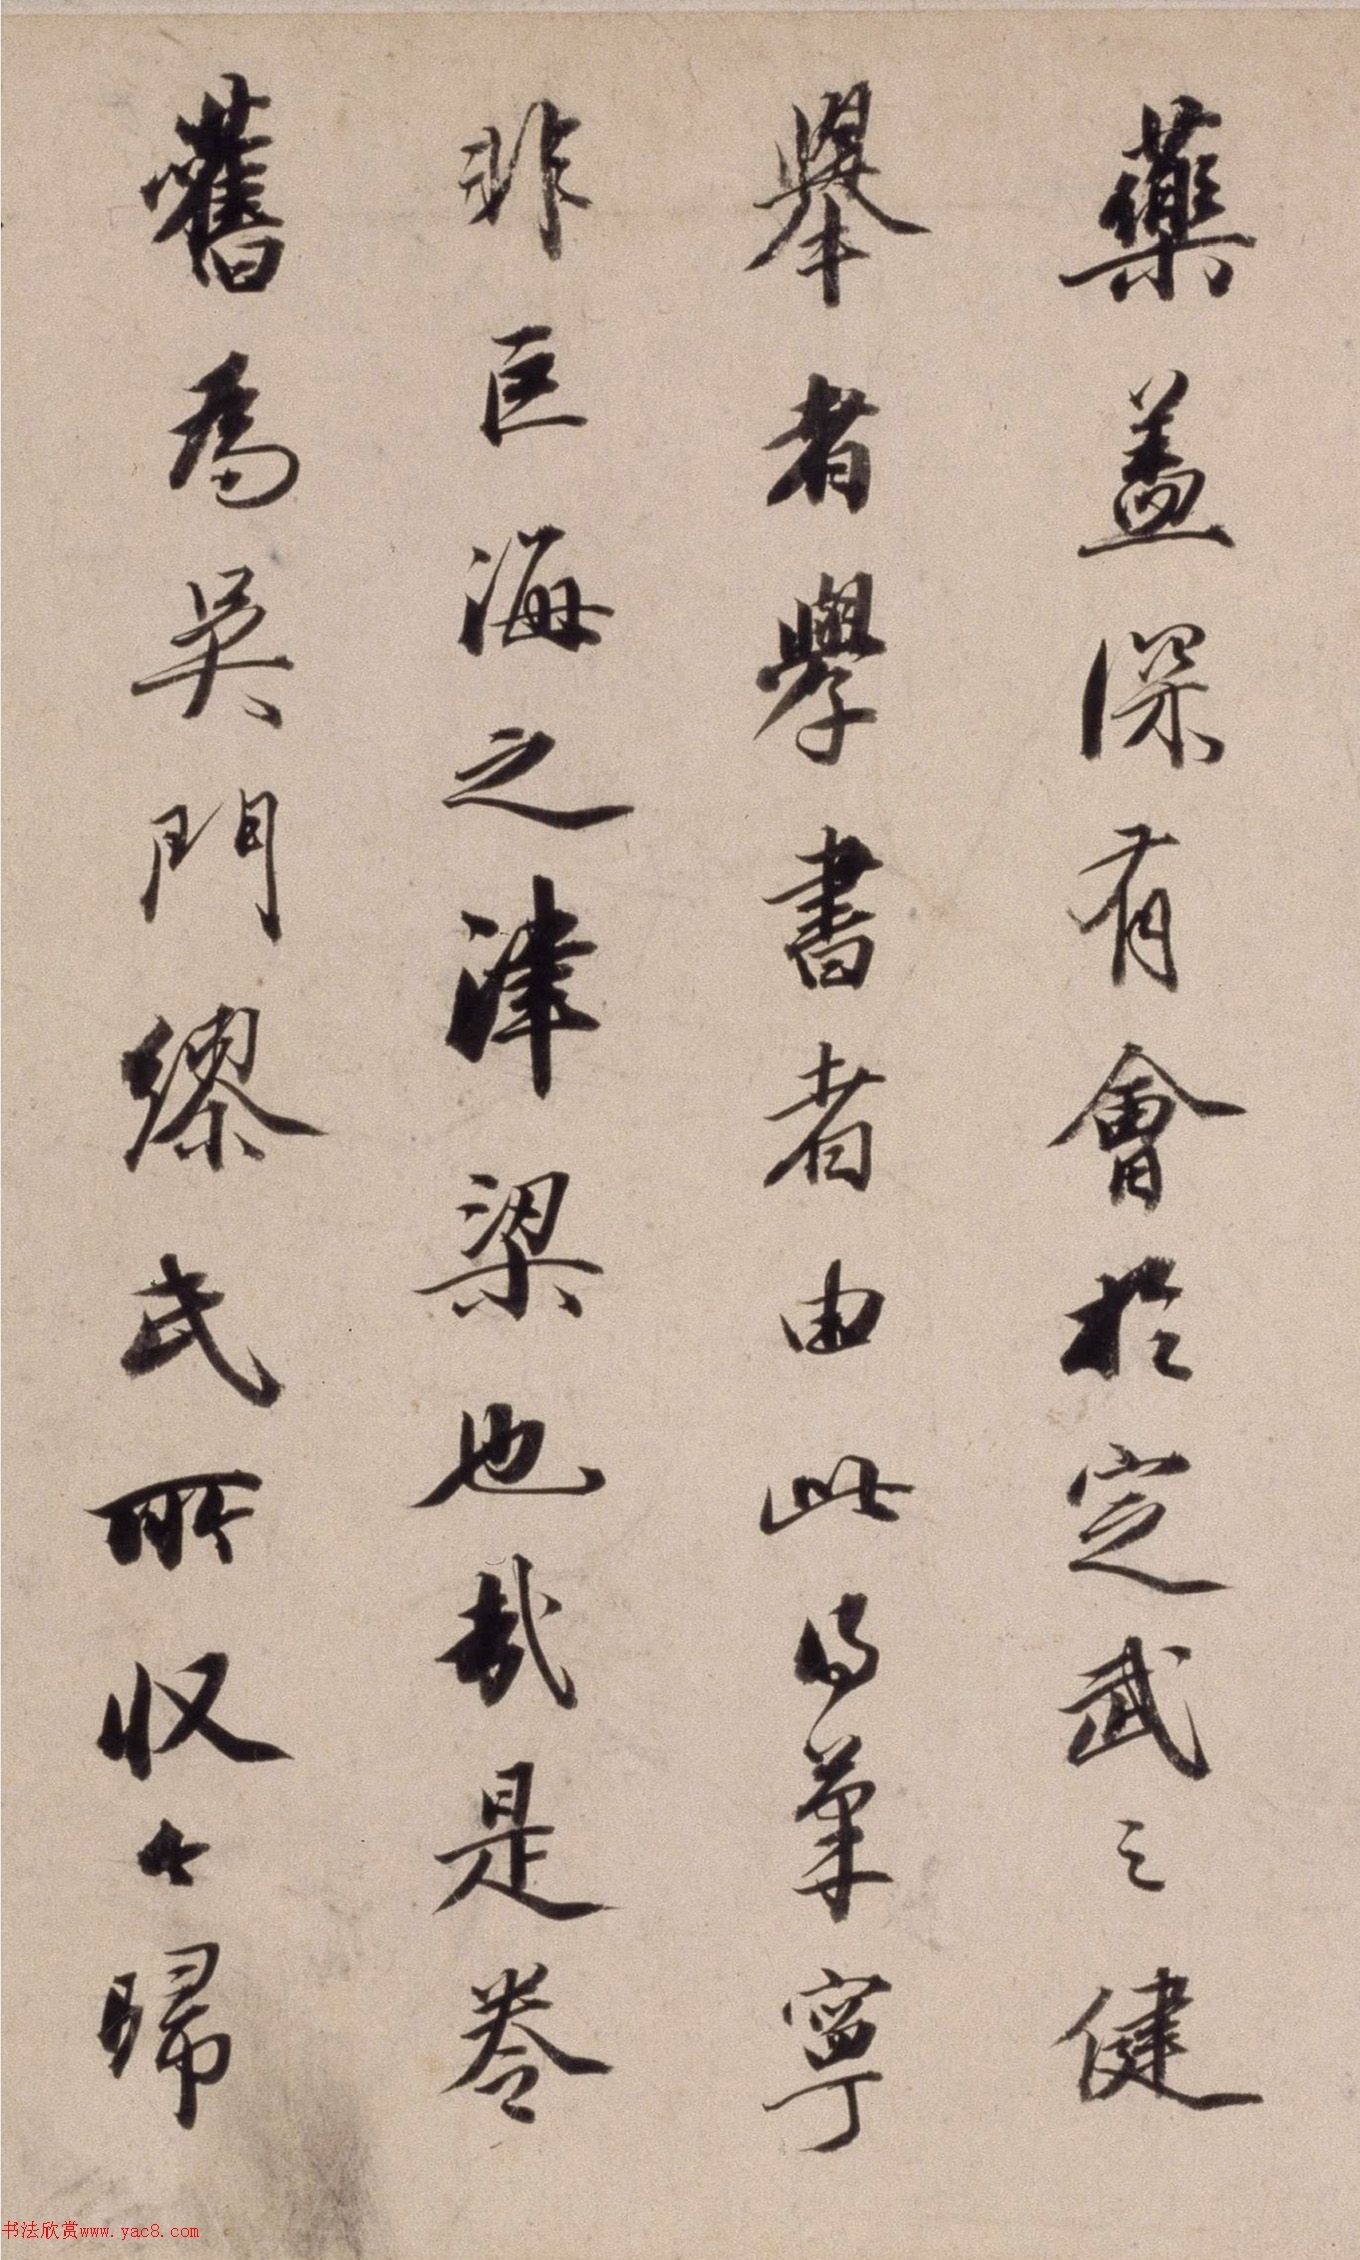 藥盖深有會於定武之健
舉者學書者由此得筆寧
非巨海之津梁也哉是卷
舊為吳門繆氏所収今歸
书法欣赏www.yac8.com